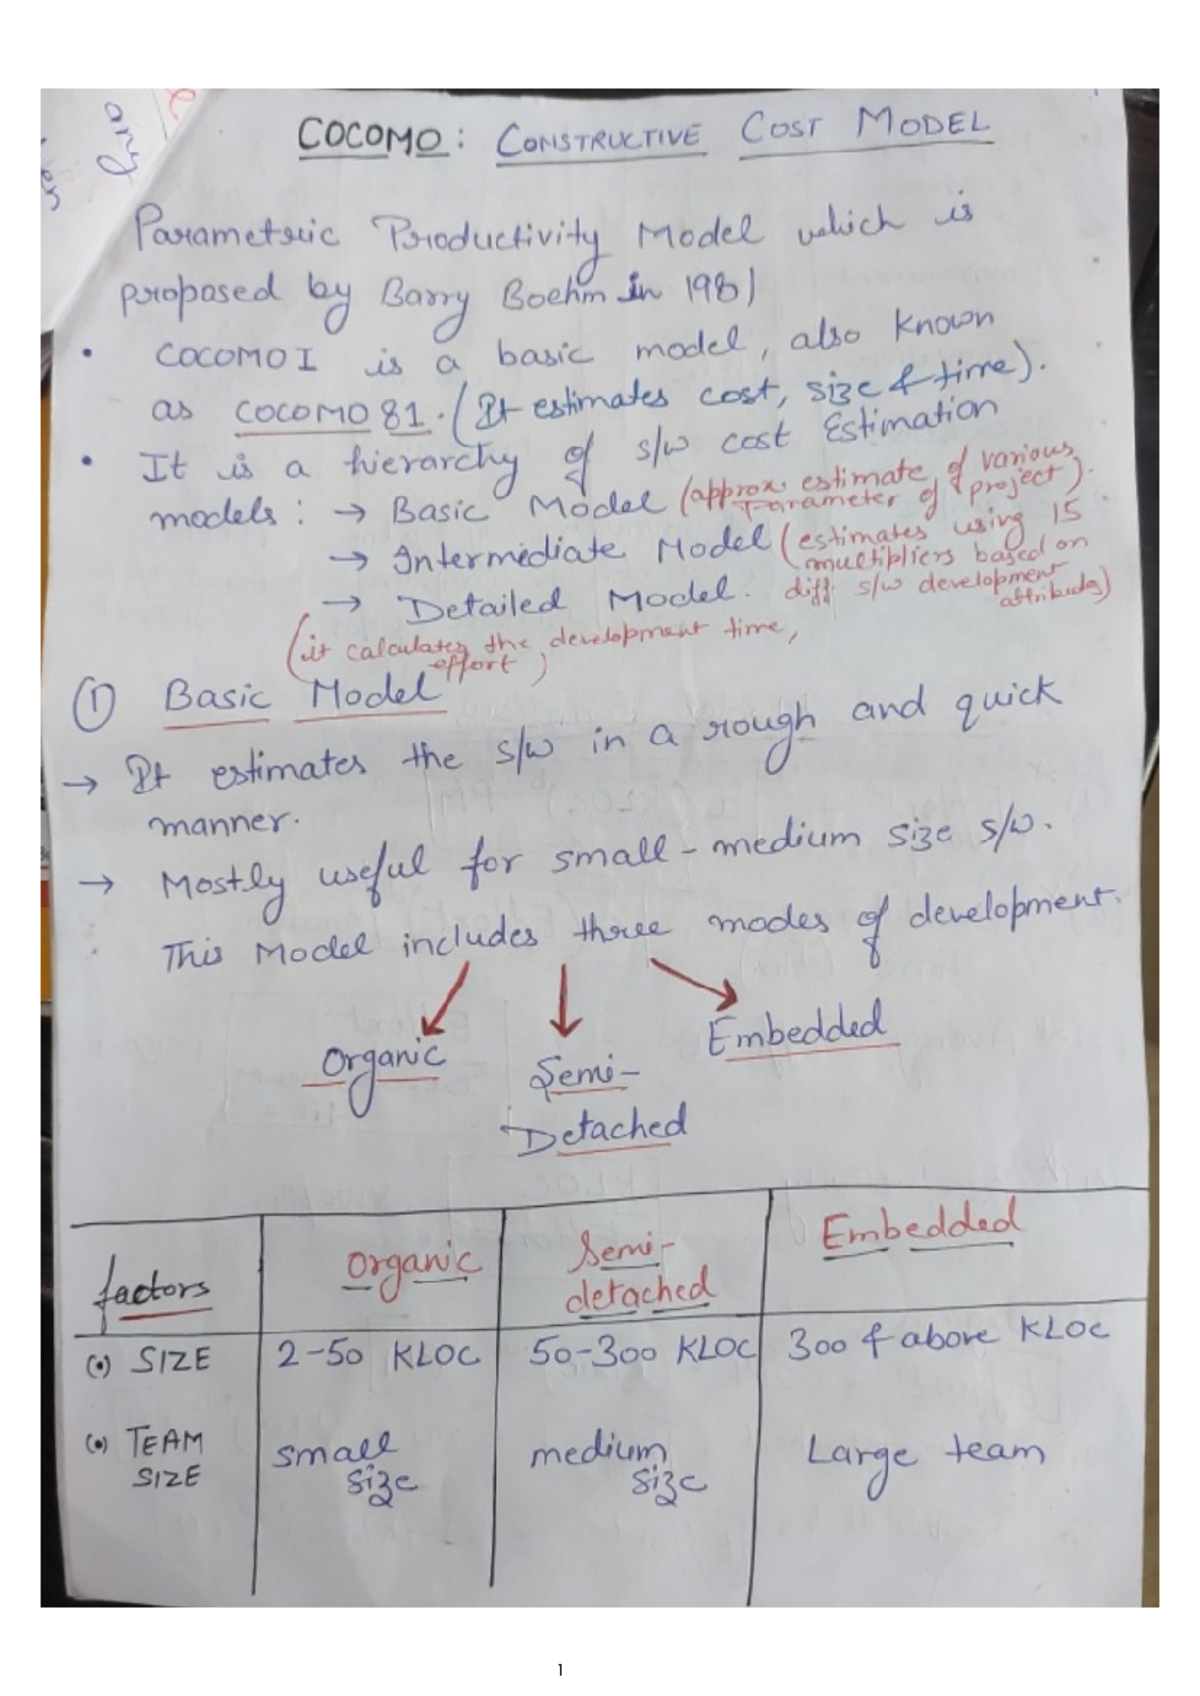 any
COCOMO: CONSTRUCTIVE COST MODEL
Parametric Productivity Model which is
proposed by Barry Boehm in 1981
• COCOMO I is a basic model, also known
as COCOMO 81. (It estimates cost, size & time).
• It is a hierarchy of s/w cost Estimation
models: → Basic Model (approx. estimate of various
Parameter of project).
→ Intermediate Model (estimates using 15
multipliers based on
→ Detailed Model. diff. s/w development
attributes)
(it calculates the development time,
effort)
① Basic Model
→ It estimates the s/w in a rough and quick
manner.
→ Mostly useful for small-medium size s/w.
This Model includes three modes of development.
Organic Semi- Embedded
Detached
factors Organic Semi- Embedded
detached
(•) SIZE 2-50 KLOC 50-300 KLOC 300 & above KLOC
(•) TEAM small medium Large team
SIZE size size
1